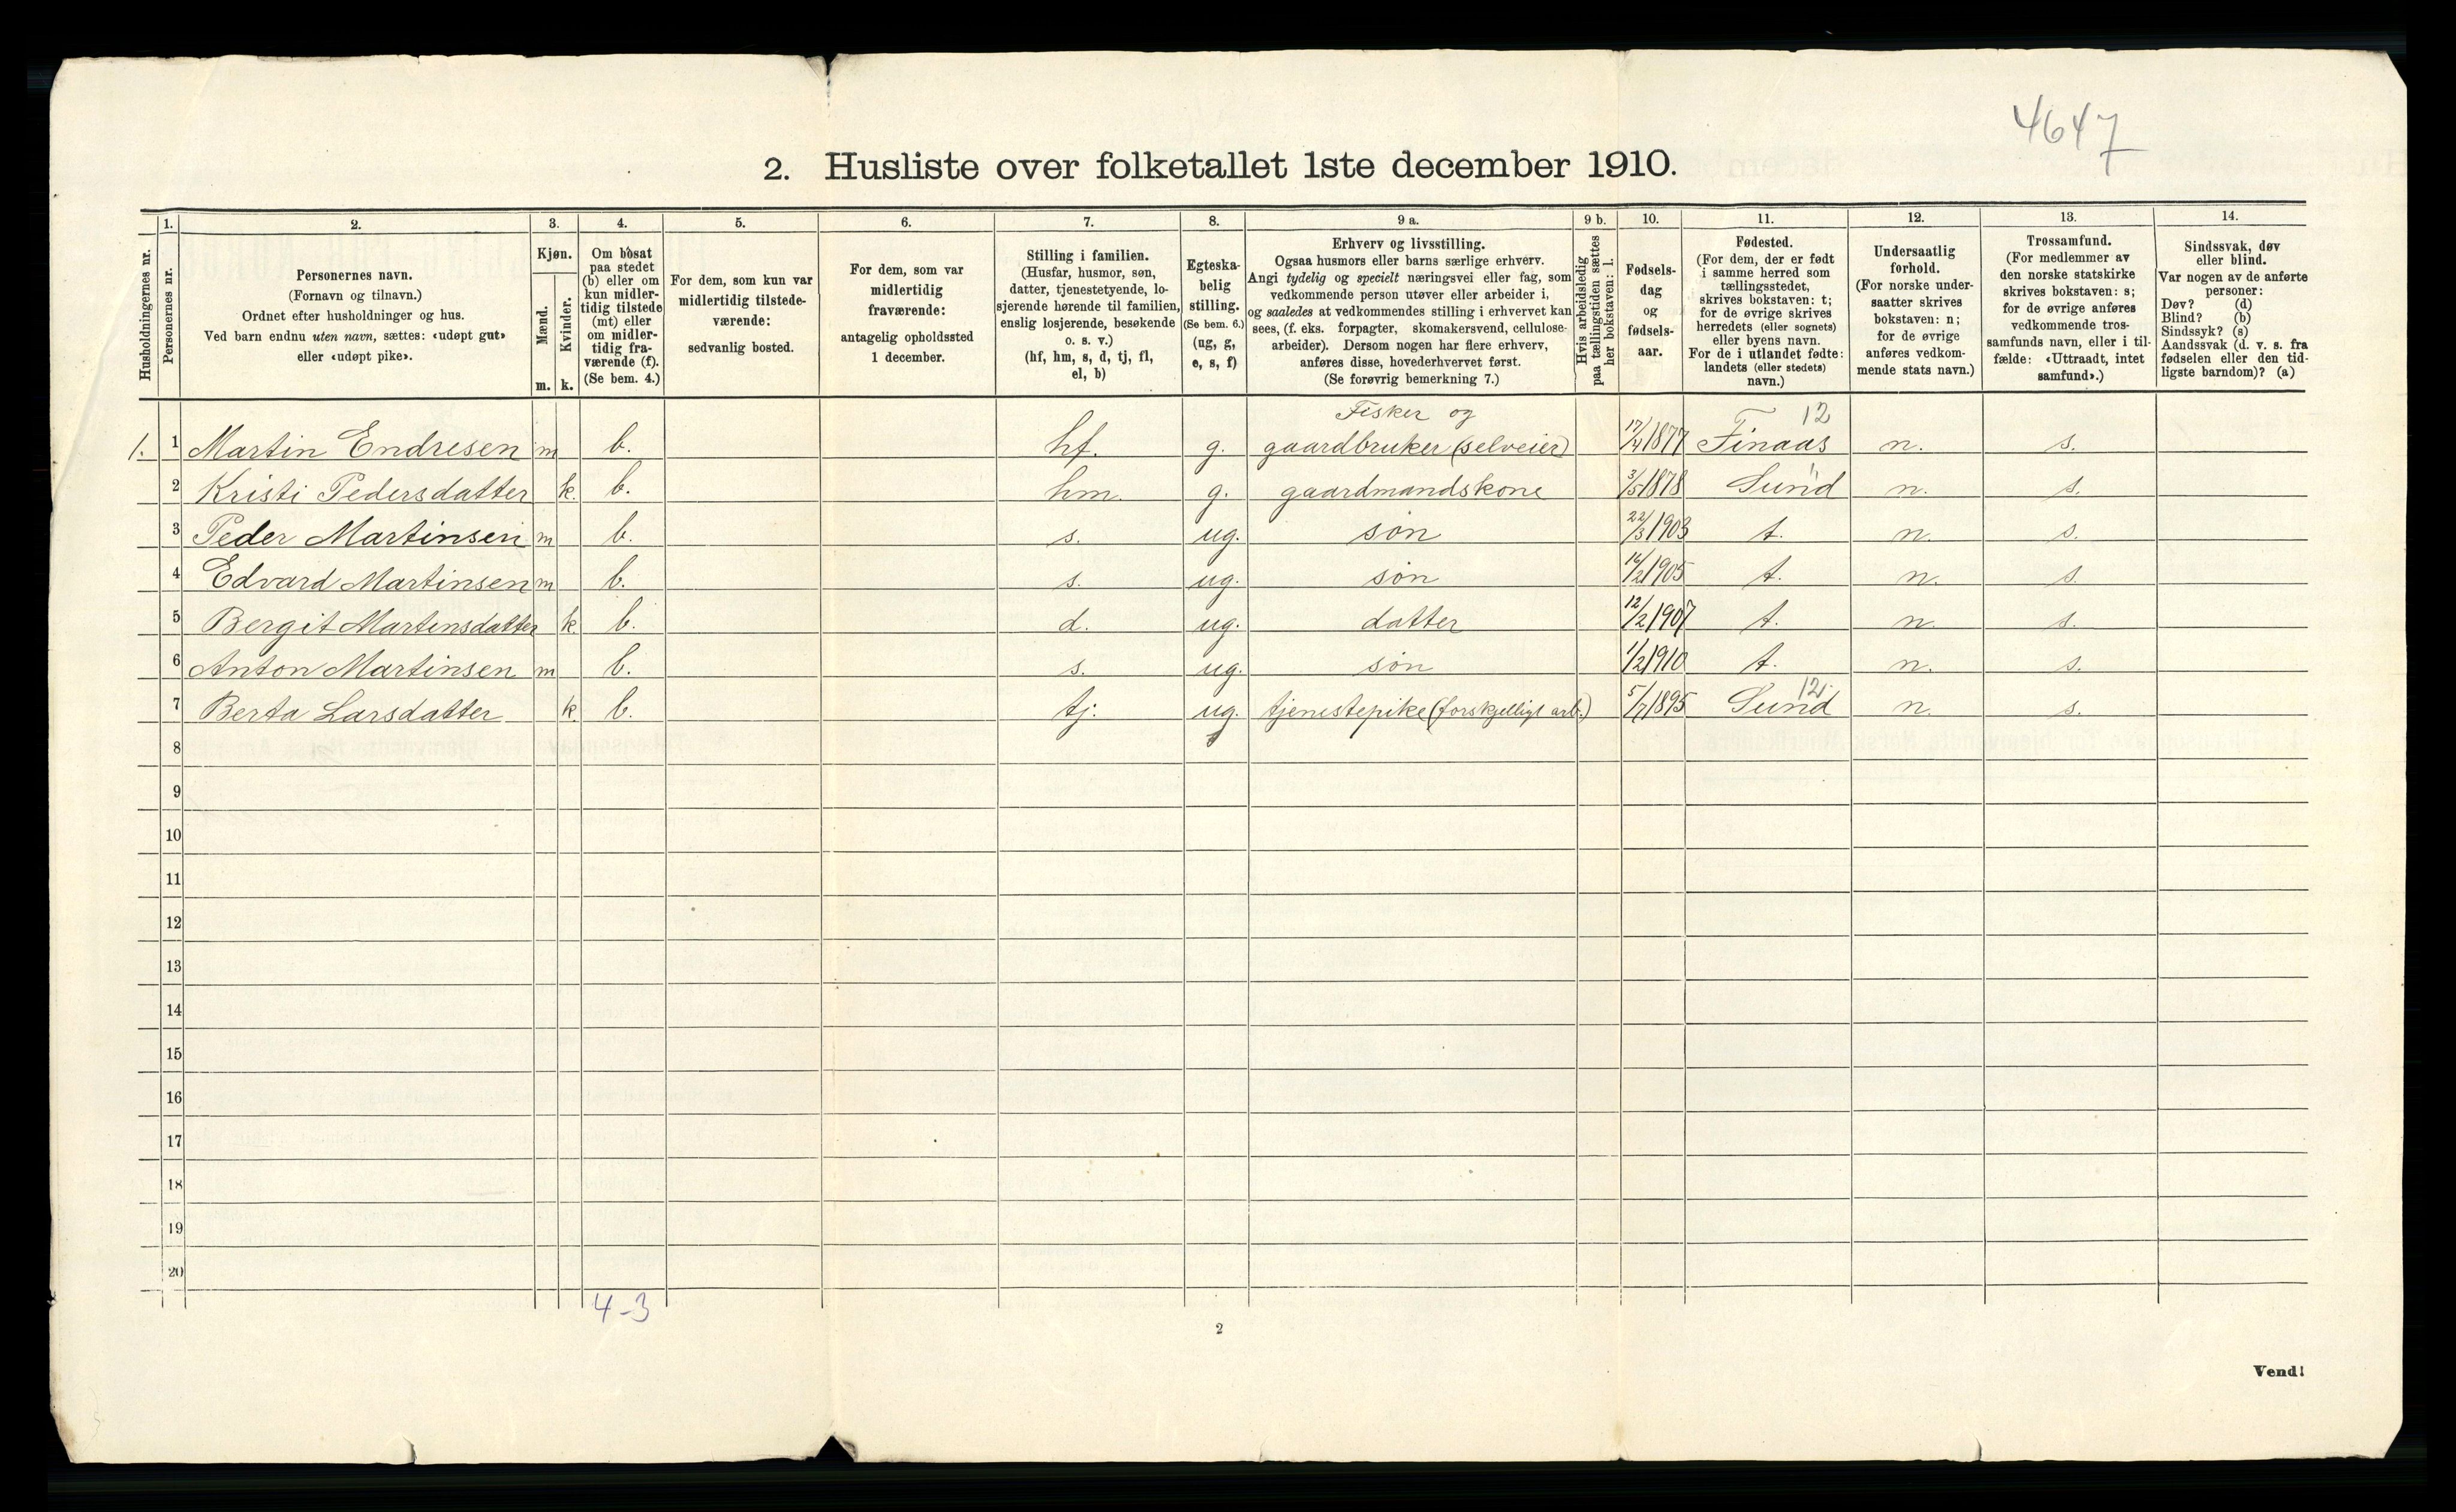 4647
2. Husliste over folketallet 1ste december 1910.
Husholdningernes nr.
1.
Personernes nr.
2.
Personernes navn.
(Fornavn og tilnavn.)
Ordnet efter husholdninger og hus.
Ved barn endnu uten navn, sættes: «udøpt gut»
eller «udøpt pike».
3.
Kjøn.
Mænd.
Kvinder.
m. k.
4.
Om bosat
paa stedet
(b) eller om
kun midler-
tidig tilstede
(mt) eller
om midler-
tidig fra-
værende (f).
(Se bem. 4.)
5.
For dem, som kun var
midlertidig tilstede-
værende:
sedvanlig bosted.
6.
For dem, som var
midlertidig
fraværende:
antagelig opholdssted
1 december.
7.
Stilling i familien.
(Husfar, husmor, søn,
datter, tjenestetyende, lo-
sjerende hørende til familien,
enslig losjerende, besøkende
o. s. v.)
(hf, hm, s, d, tj, fl,
el, b)
8.
Egteska-
belig
stilling.
(Se bem. 6.)
(ug, g,
e, s, f)
9 a.
Erhverv og livsstilling.
Ogsaa husmors eller barns særlige erhverv.
Angi tydelig og specielt næringsvei eller fag, som
vedkommende person utøver eller arbeider i,
og saaledes at vedkommendes stilling i erhvervet kan
sees, (f. eks. forpagter, skomakersvend, cellulose-
arbeider). Dersom nogen har flere erhverv,
anføres disse, hovederhvervet først.
(Se forøvrig bemerkning 7.)
9 b.
Hvis arbeidsledig
paa tællingstiden sættes
her bokstaven: l.
10.
Fødsels-
dag
og
fødsels-
aar.
11.
Fødested.
(For dem, der er født
i samme herred som
tællingsstedet,
skrives bokstaven: t;
for de øvrige skrives
herredets (eller sognets)
eller byens navn.
For de i utlandet fødte:
landets (eller stedets)
navn.)
12.
Undersaatlig
forhold.
(For norske under-
saatter skrives
bokstaven: n;
for de øvrige
anføres vedkom-
mende stats navn.)
13.
Trossamfund.
(For medlemmer av
den norske statskirke
skrives bokstaven: s;
for de øvrige anføres
vedkommende tros-
samfunds navn, eller i til-
fælde: «Uttraadt, intet
samfund».)
14.
Sindssvak, døv
eller blind.
Var nogen av de anførte
personer:
Døv? (d)
Blind? (b)
Sindssyk? (s)
Aandssvak (d. v. s. fra
fødselen eller den tid-
ligste barndom)? (a)
Fisker og 12
1. 1 Martin Endresen m b. hf. g. gaardbruker (selveier) 17/4 1877 Finaas n. s.
2 Kristi Pedersdatter k. b. hm. g. gaardmandskone 3/5 1878 Sund " n. s.
3 Peder Martinsen m b. s. ug. søn 22/3 1903 t. n. s.
4 Edvard Martinsen m b. s. ug. søn 16/2 1905 t. n. s.
5 Bergit Martinsdatter k. b. d. ug. datter 12/2 1907 t. n. s.
6 Anton Martinsen m b. s. ug. søn 1/2 1910 t. n. s.
12
7 Berta Larsdatter k. b. tj. ug. tjenestepike (forskjelligt arb.) 5/7 1895 Sund n. s.
8
9
10
11
12
13
14
15
16
17
18
19
20
4-3
2
Vend!